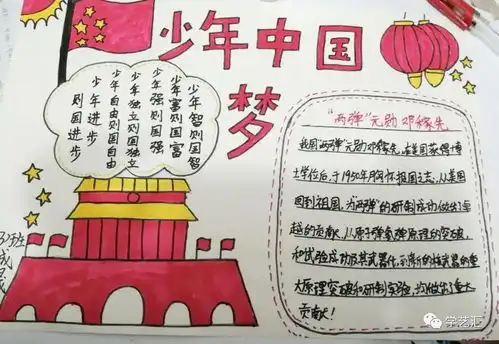 少年中国
梦
少年智则国智
少年富则国富
少年强则国强
少年独立则国独立
少年自由则国自由
少年进步
则国进步
"两弹"元勋 邓稼先
我国"两弹"元勋邓稼先,在美国获得博
士学位后,于1950年胸怀报国之志,从美国
回到祖国,为"两弹"的研制成功做出了卓
越的贡献,从原子弹氢弹原理的突破,
和试验成功及其武器化,到新的核武器的重
大原理突破和研制实验,均做出了重大
贡献!
班
学艺汇